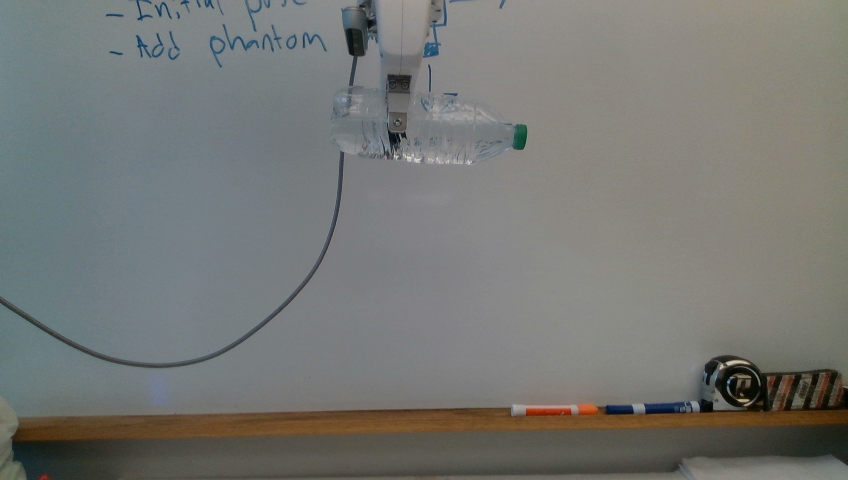 - Initial pose
- Add phantom